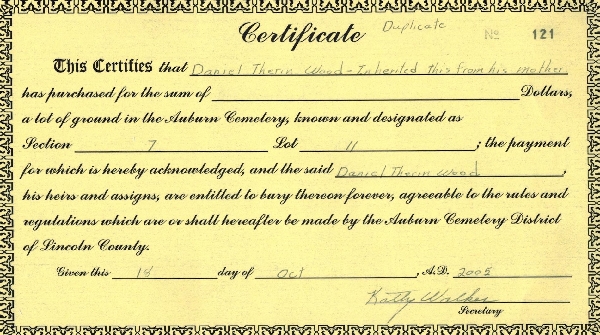 Certificate Duplicate No 121
This Certifies that Daniel Therin Wood - Inherited this from his mother
has purchased for the sum of Dollars,
a lot of ground in the Auburn Cemetery, known and designated as
Section 7 Lot 11 ; the payment
for which is hereby acknowledged, and the said Daniel Therin Wood,
his heirs and assigns, are entitled to bury thereon forever, agreeable to the rules and
regulations which are or shall hereafter be made by the Auburn Cemetery District
of Lincoln County.
Given this 18 day of Oct, A.D. 2005
Kathy Walker
Secretary